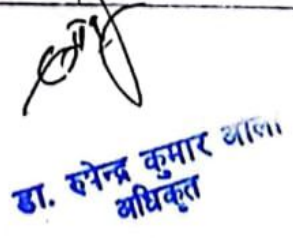 डा. रुपेन्द्र कुमार
अधिकृत